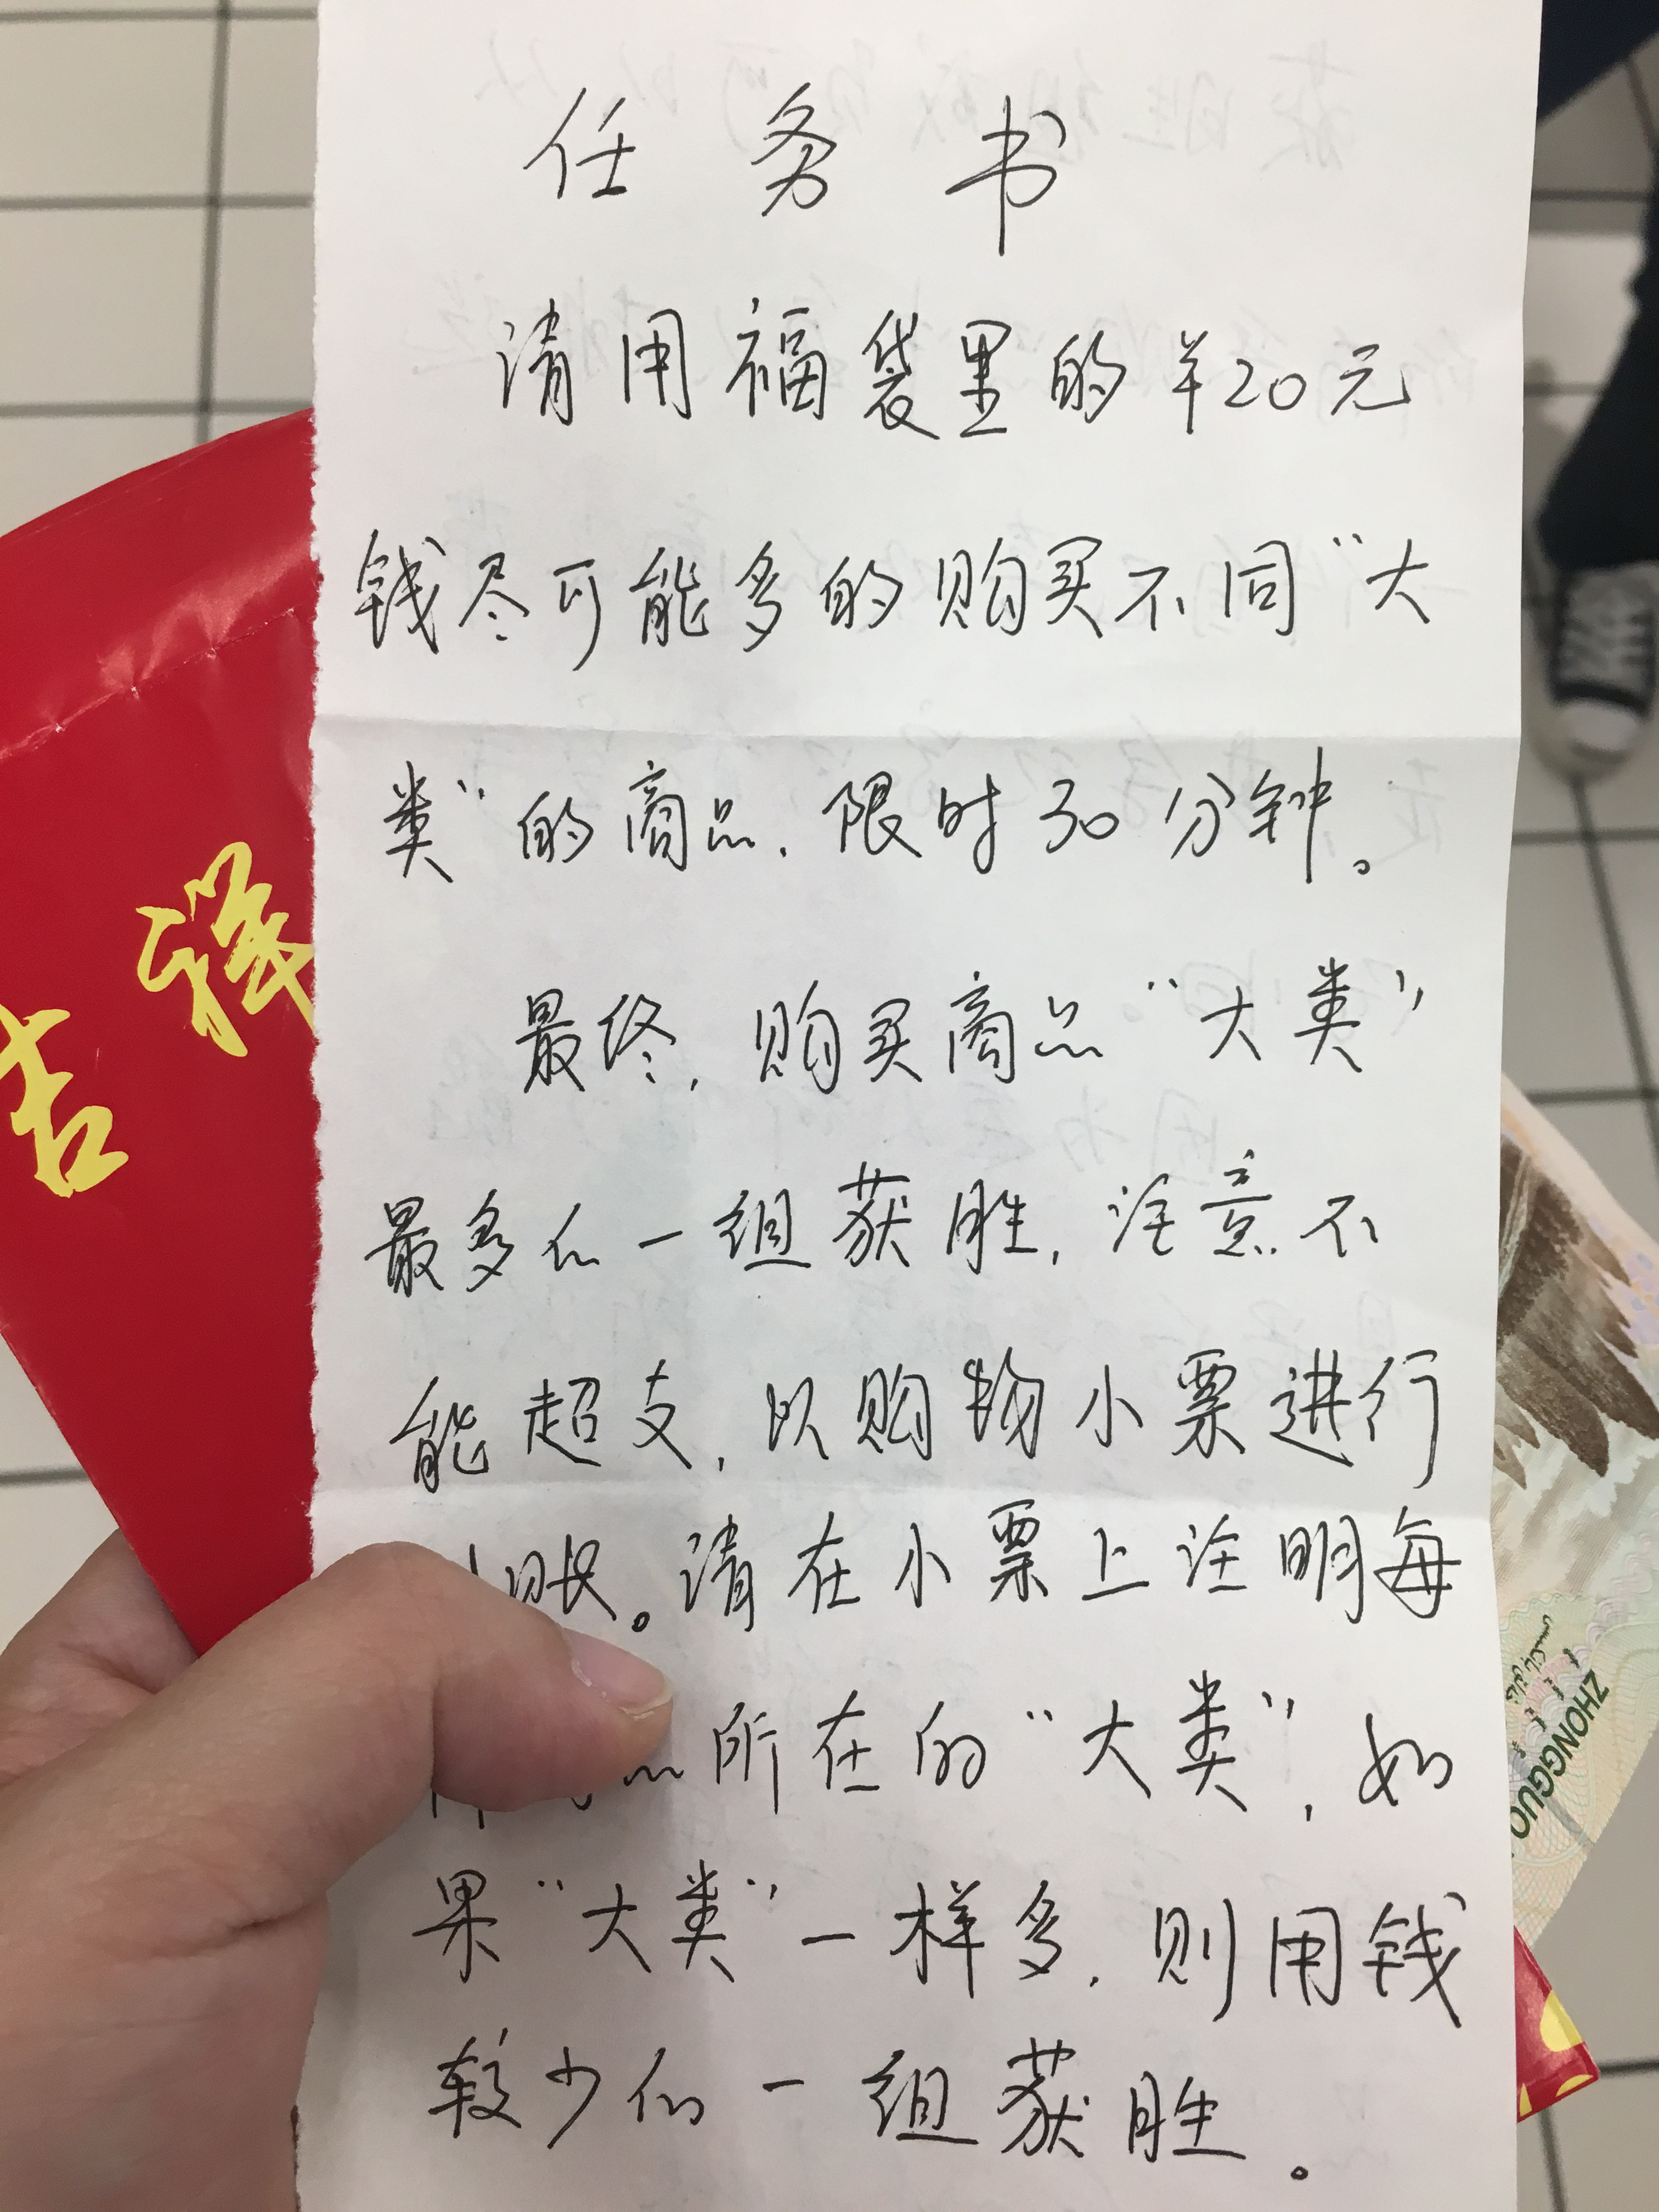 任务书
请用福袋里的¥20元
钱尽可能多的购买不同“大
类”的商品,限时30分钟。
最终,购买商品“大类”
最多的一组获胜,注意不
能超支,以购物小票进行
账。请在小票上注明每
品所在的“大类”,如
果“大类”一样多,则用钱
较少的一组获胜。
吉祥
ZHONGGUO